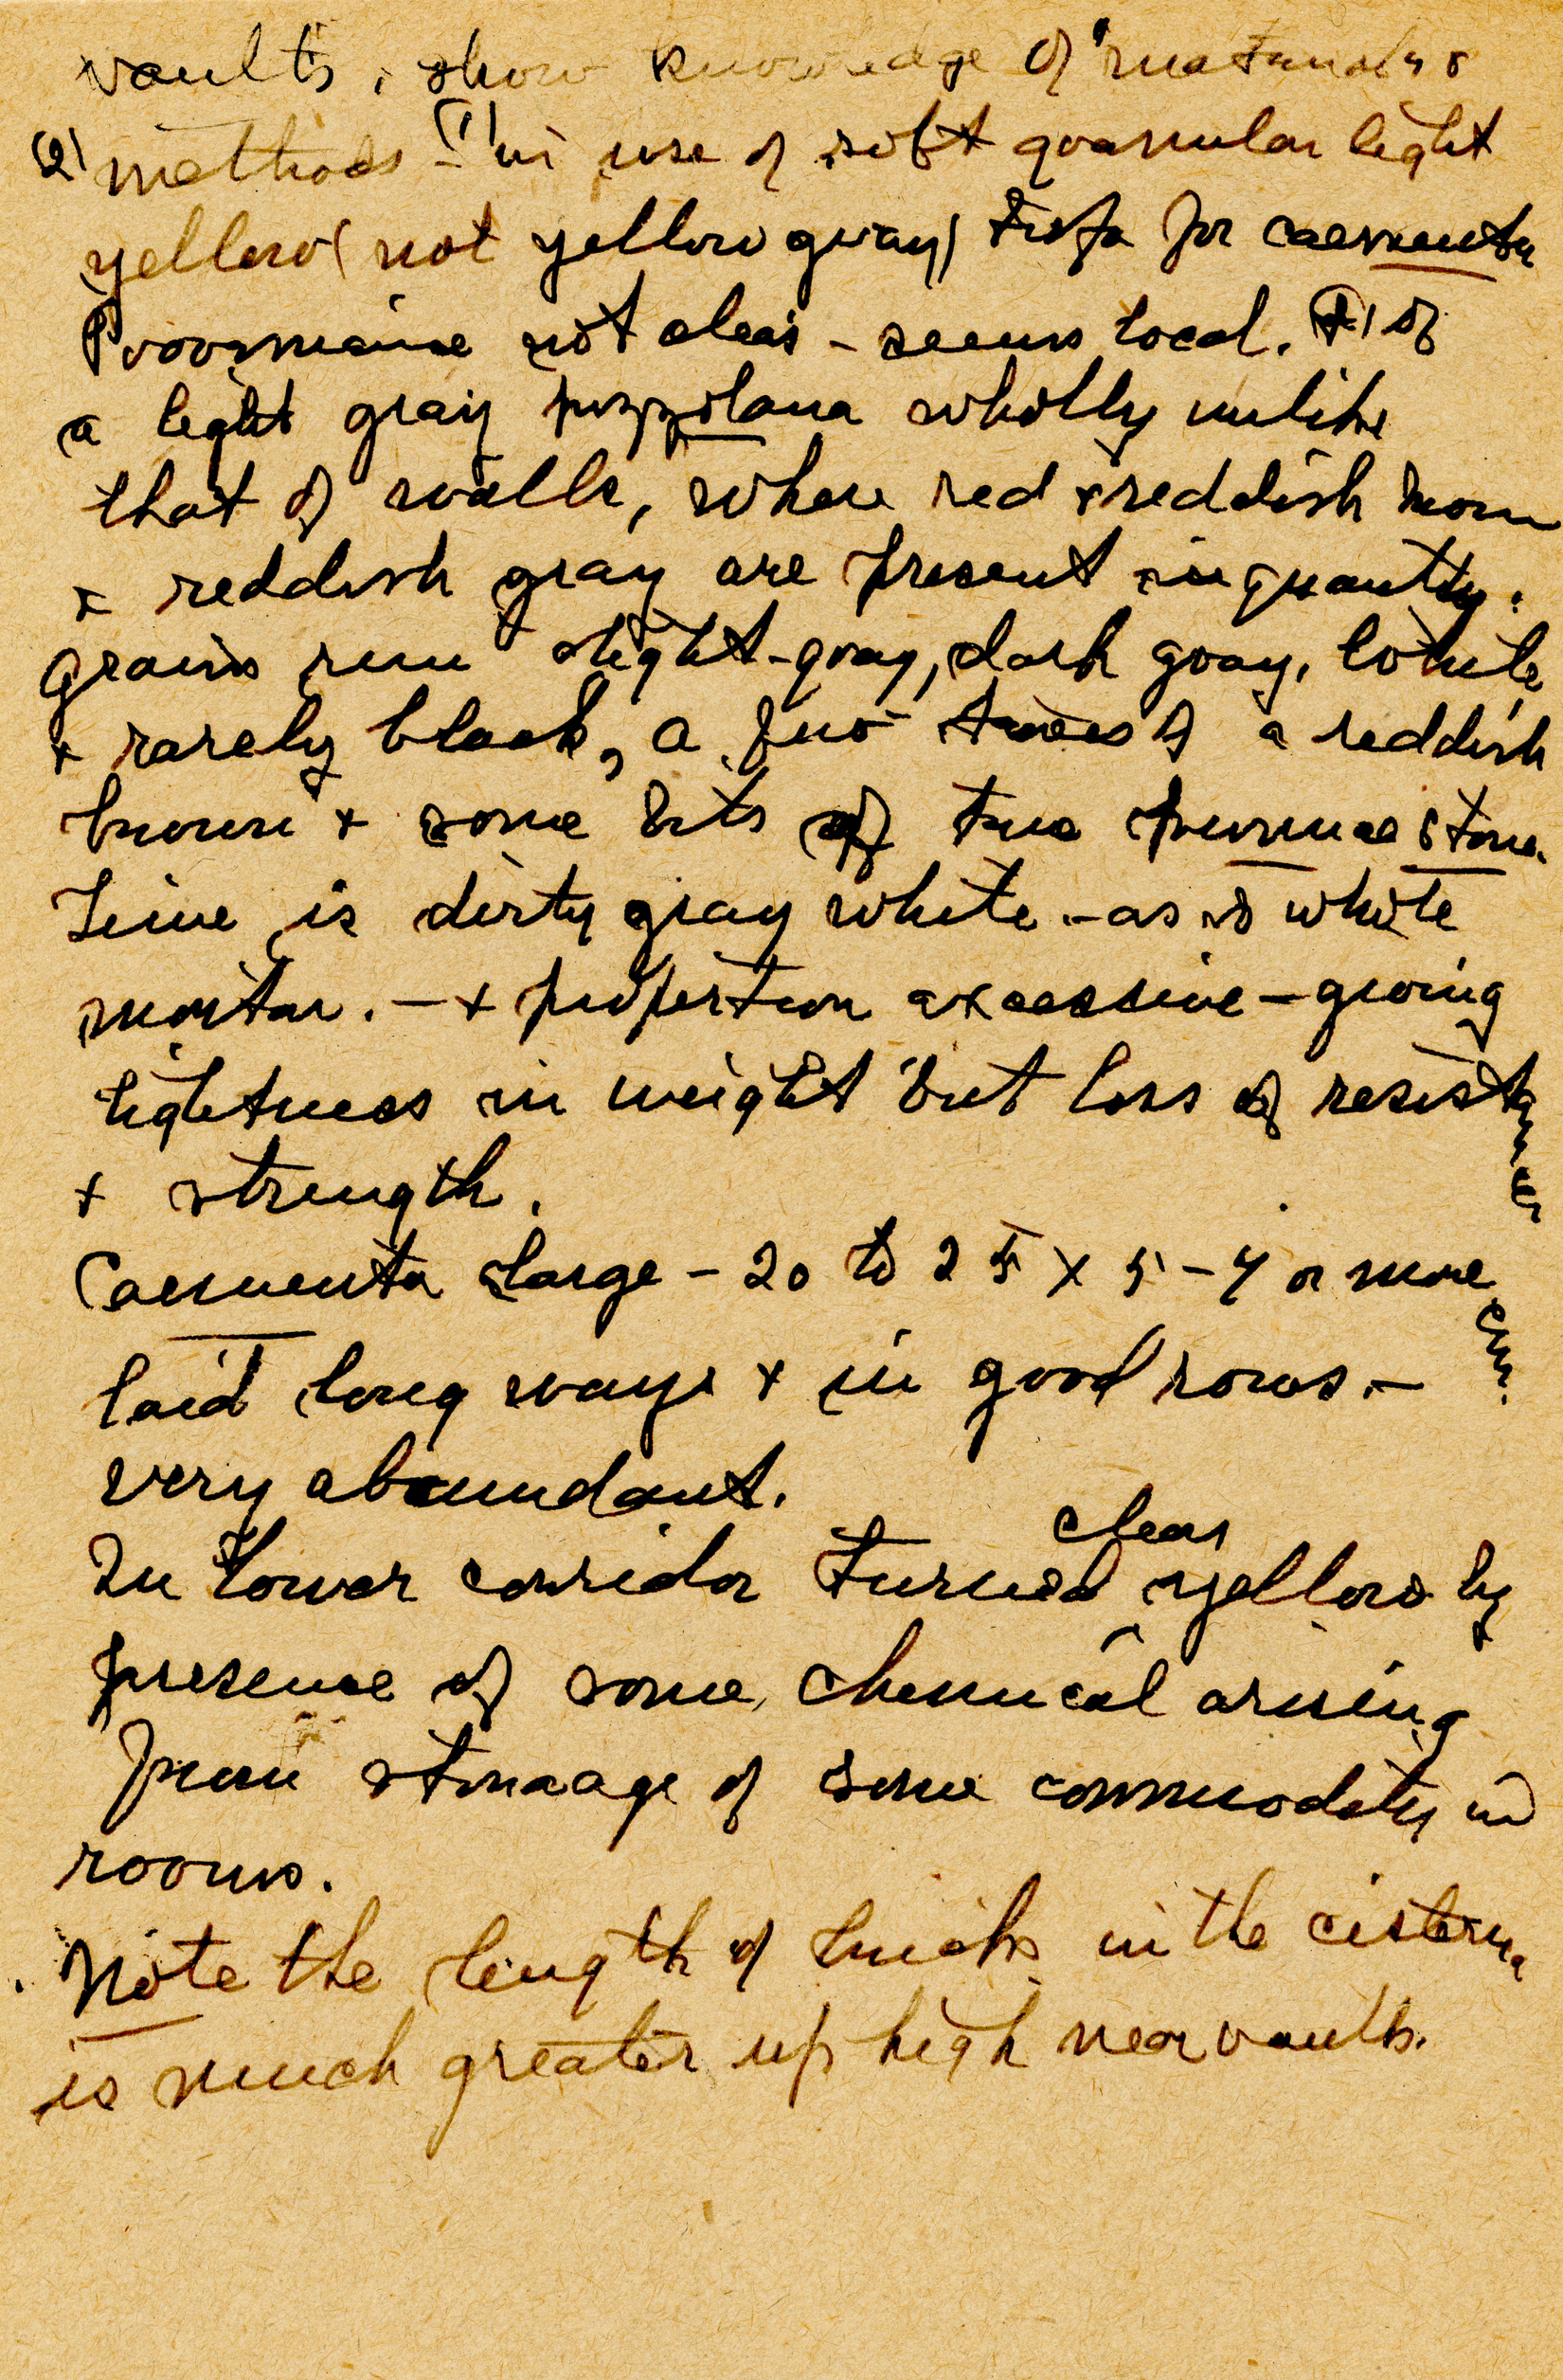 vaults, show knowledge of materials &
(2) methods - (1) in use of soft granular light
yellow (not yellow gray) tufa for caementa
Provenience not clear - seems local. (2) of
a light gray pozzolana wholly unlike
that of walls, where red & reddish brown
+ reddish gray are present in quantity.
grains run light-gray, dark gray, white
+ rarely black, a few traces of a reddish
brown + some bits of true pumice stone.
Lime is dirty gray white - as is whole
mortar. - + proportion excessive - giving
lightness in weight but loss of resistance
+ strength.
Caementa large - 20 to 25 x 5-7 or more cm.
laid long ways + in good rows -
very abundant.
In lower corridor turned clear yellow by
presence of some chemical arising
from storage of some commodity in
rooms.
Note the length of bricks in the cisterna
is much greater up high near vaults.